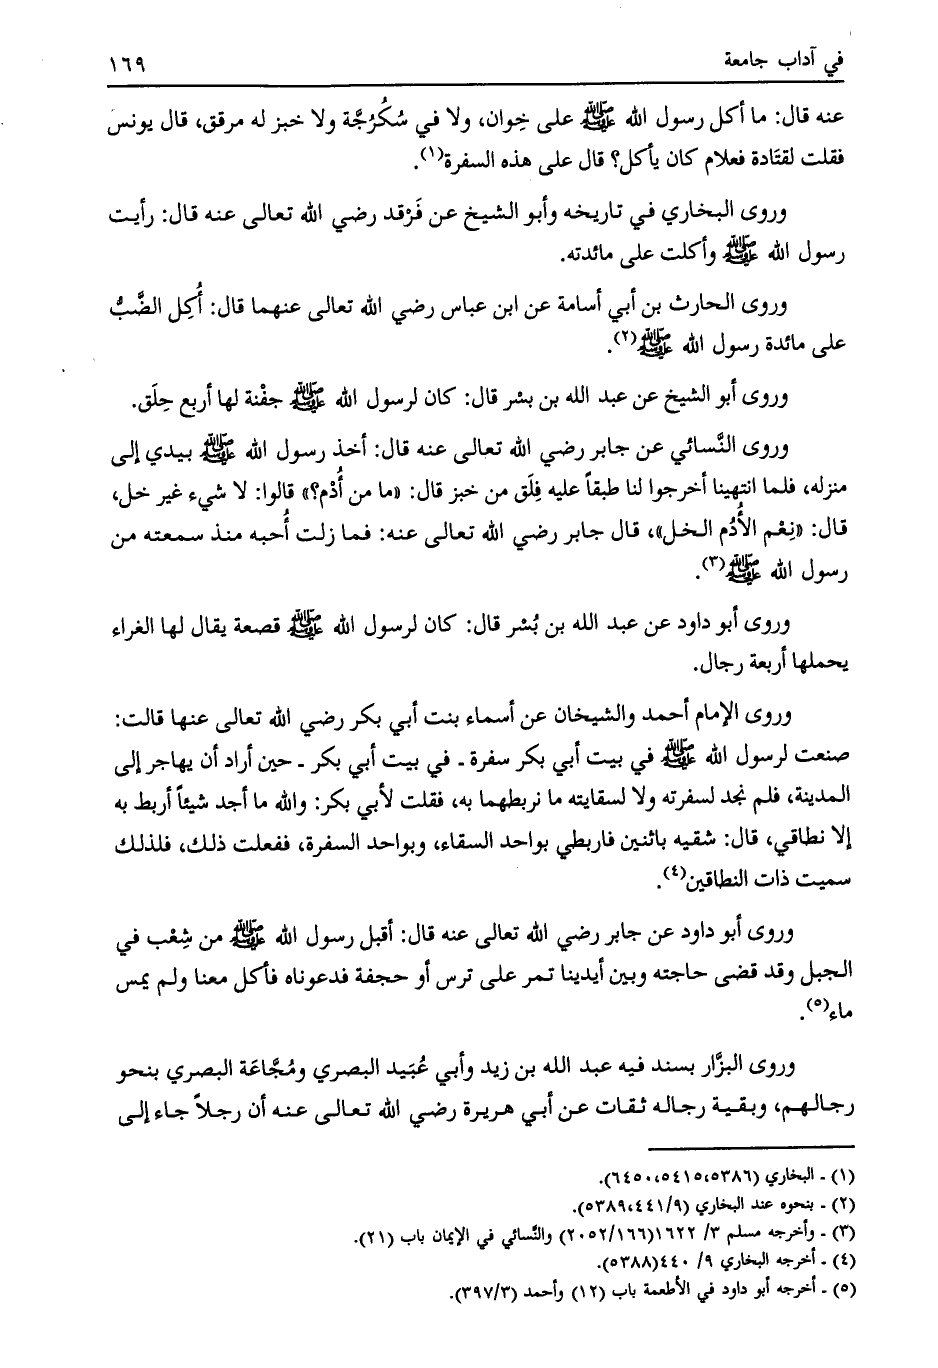 في آداب جامعة
١٦٩
عنه قال: ما أكل رسول الله ﷺ على خِوان، ولا في سُكُرُجَّة ولا خبز له مرقق، قال يونس
فقلت لقتَادة فعلام كان يأكل؟ قال على هذه السفرة(١).
وروى البخاري في تاريخه وأبو الشيخ عن فَرْقد رضي الله تعالى عنه قال: رأيت
رسول الله ﷺ وأكلت على مائدته.
وروى الحارث بن أبي أسامة عن ابن عباس رضي الله تعالى عنهما قال: أُكِل الضَّبُّ
على مائدة رسول الله ﷺ(٢).
وروى أبو الشيخ عن عبد الله بن بشر قال: كان لرسول الله ﷺ جفْنة لها أربع حِلَق.
وروى النَّسائي عن جابر رضي الله تعالى عنه قال: أخذ رسول الله ﷺ بيدي إلى
منزله، فلما انتهينا أخرجوا لنا طبقاً عليه فِلَق من خبز قال: «ما من أُدْم؟» قالوا: لا شيء غير خل،
قال: «نِعْم الأُدُم الخل»، قال جابر رضي الله تعالى عنه: فما زلت أُحبه منذ سمعته من
رسول الله ﷺ(٣).
وروى أبو داود عن عبد الله بن بُشر قال: كان لرسول الله ﷺ قصعة يقال لها الغراء
يحملها أربعة رجال.
وروى الإمام أحمد والشيخان عن أسماء بنت أبي بكر رضي الله تعالى عنها قالت:
صنعت لرسول الله ﷺ في بيت أبي بكر سفرة ـ في بيت أبي بكر ـ حين أراد أن يهاجر إلى
المدينة، فلم نجد لسفرته ولا لسقايته ما نربطهما به، فقلت لأبي بكر: والله ما أجد شيئاً أربط به
إلا نطاقي، قال: شقيه باثنين فاربطي بواحد السقاء، وبواحد السفرة، ففعلت ذلك، فلذلك
سميت ذات النطاقين(٤).
وروى أبو داود عن جابر رضي الله تعالى عنه قال: أقبل رسول الله ﷺ من شِعْب في
الجبل وقد قضى حاجته وبين أيدينا تمر على ترس أو حجفة فدعوناه فأكل معنا ولم يمس
ماء(٥).
وروى البزَّار بسند فيه عبد الله بن زيد وأبي عُبَيد البصري ومُجَّاعَة البصري بنحو
رجالهم، وبقية رجاله ثقات عن أبي هريرة رضي الله تعالى عنه أن رجلاً جاء إلى
(١) ـ البخاري (٥٣٨٦،٥٤١٥،٦٤٥٠).
(٢) ـ بنحوه عند البخاري (٩/٤٤١،٥٣٨٩).
(٣) ـ وأخرجه مسلم ٣/ ١٦٢٢(١٦٦/٢٠٥٢) والنَّسائي في الإيمان باب (٢١).
(٤) ـ أخرجه البخاري ٩/ ٤٤٠(٥٣٨٨).
(٥) ـ أخرجه أبو داود في الأطعمة باب (١٢) وأحمد (٣/٣٩٧).